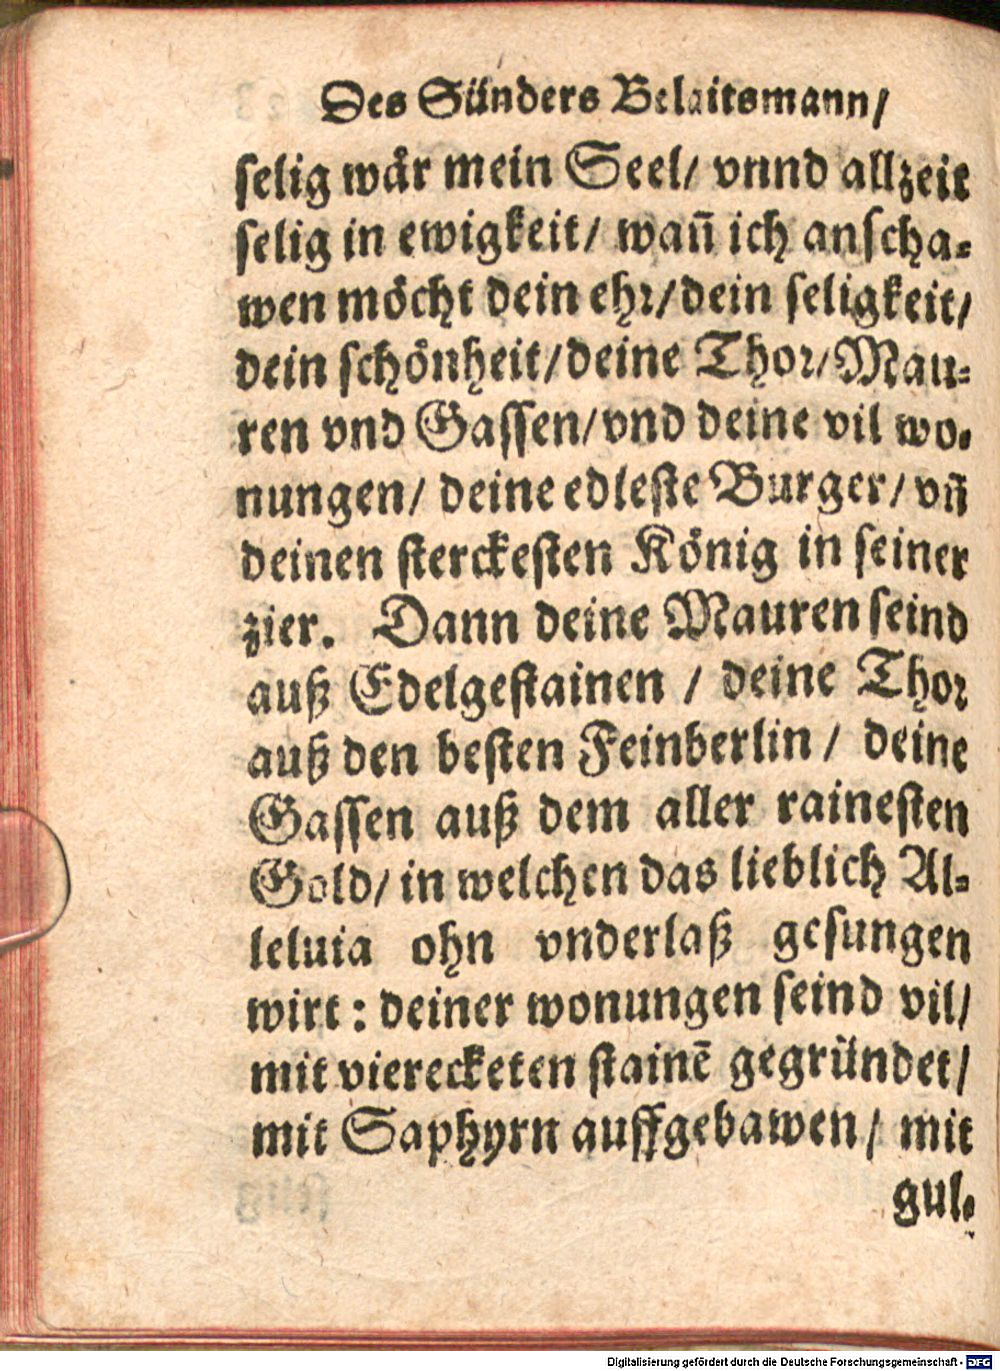 Des Sünders Belaitsmann/
selig wår mein Seel/ vnnd allzeit
selig in ewigkeit/ wañ ich anscha-
wen möcht dein ehr/dein seligkeit/
dein schönheit/deine Thor/Mau-
ren vnd Gassen/vnd deine vil wo-
nungen/ deine edleste Burger/ vñ
deinen sterckesten König in seiner
zier. Dann deine Mauren seind
auß Edelgestainen / deine Thor
auß den besten Feinberlin / deine
Gassen auß dem aller rainesten
Gold/ in welchen das lieblich Al-
leluia ohn vnderlaß gesungen
wirt : deiner wonungen seind vil/
mit vierecketen stainē gegründet/
mit Saphyrn auffgebawen/ mit
gul-
Digitalisierung gefördert durch die Deutsche Forschungsgemeinschaft - DFG